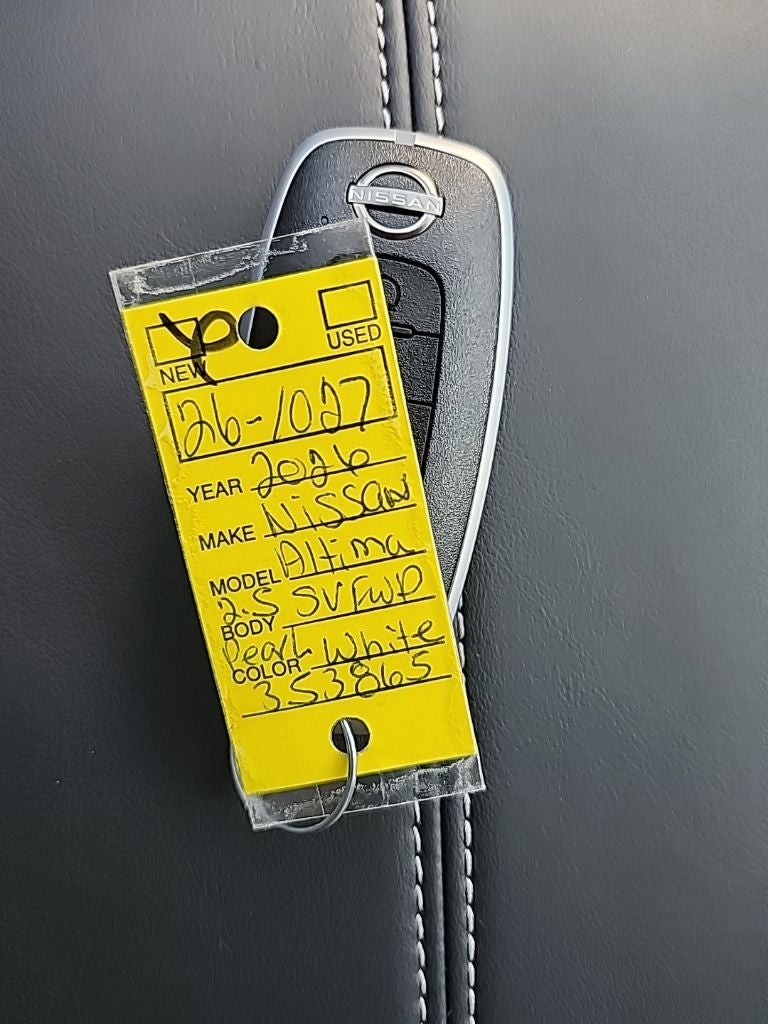 NISSAN
NEW USED
26-1027
YEAR 2026
MAKE Nissan
MODEL Altima
2.5 SV FWD
BODY
Pearl White
COLOR
353865